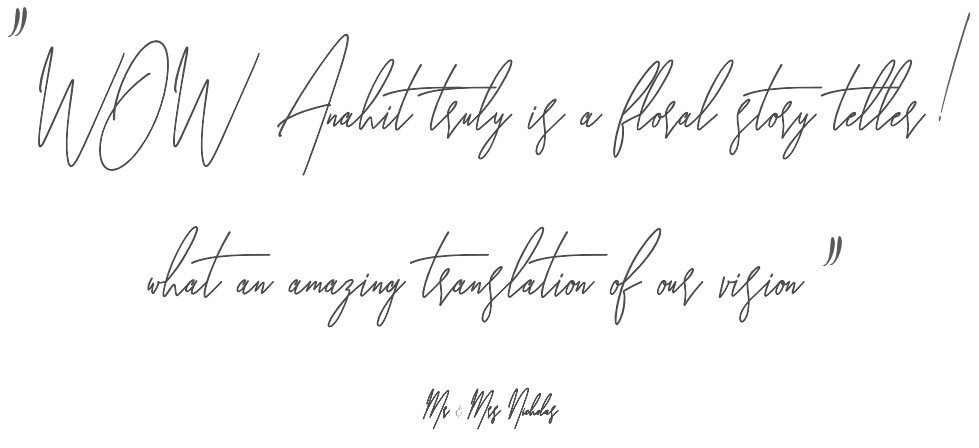 " WOW Anahit truly is a floral story teller!
what an amazing translation of our vision "
Mr & Mrs Nicholas